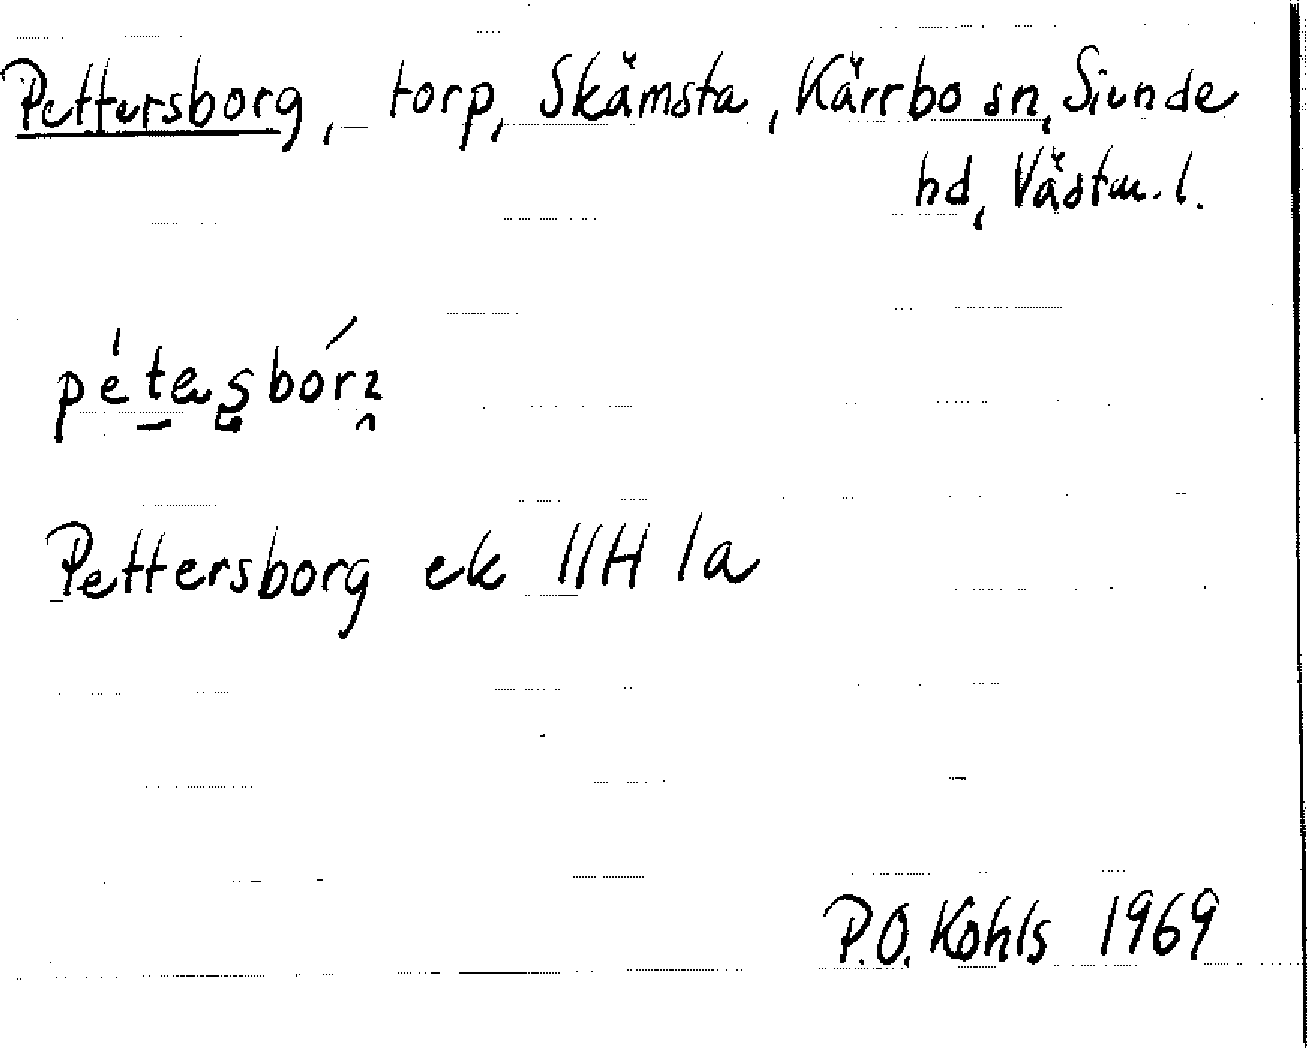 Pettersborg, torp, Skämsta, Kärrbo sn, Siende
hd, Västm. l.
Pettersborg ek 11H 1a
P.O. Kohls 1969